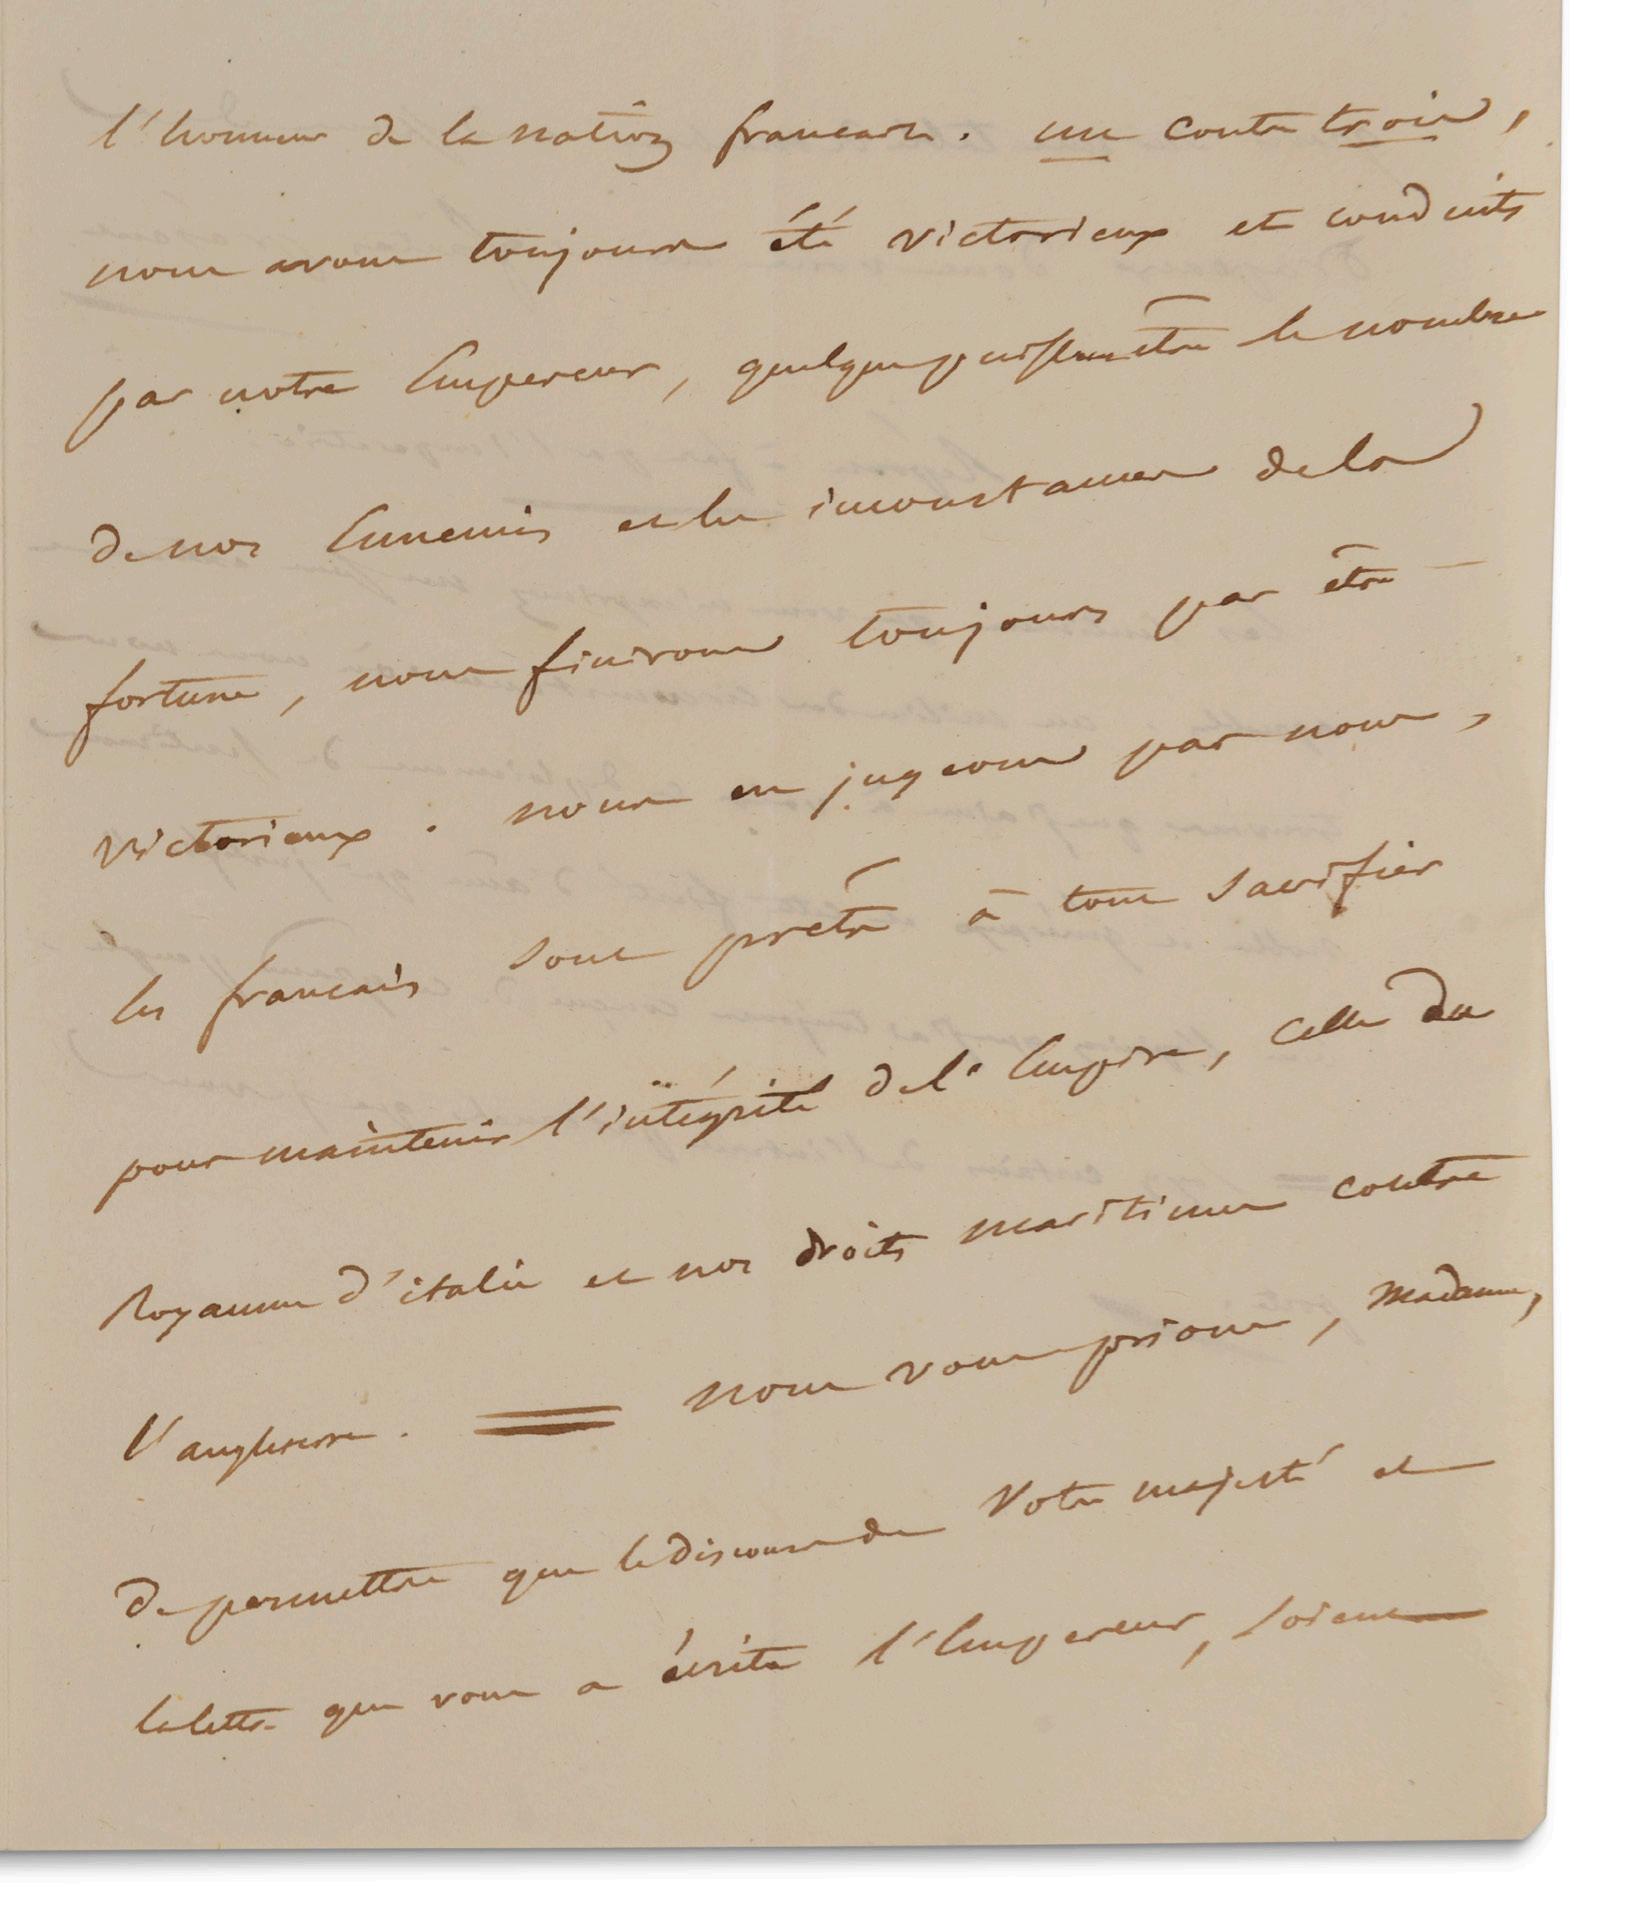 l'honneur de la nation francaise. un contre trois,
nous avons toujours été victorieux et conduits
par notre Empereur, quelque puissent être le nombre
de nos Ennemis et les inconstances de la
fortune, nous finirons toujours par être
victorieux. nous en jugeons par nous,
les francais sont prêts à tous sacrifier
pour maintenir l'intégrité de l'Empire, celle du
Royaume d'italie et nos droits maritimes contre
l'angleterre. = nous vous prions, Madame,
de permettre que le discours de Votre majesté et
la lettre que vous a écrite l'Empereur, soient